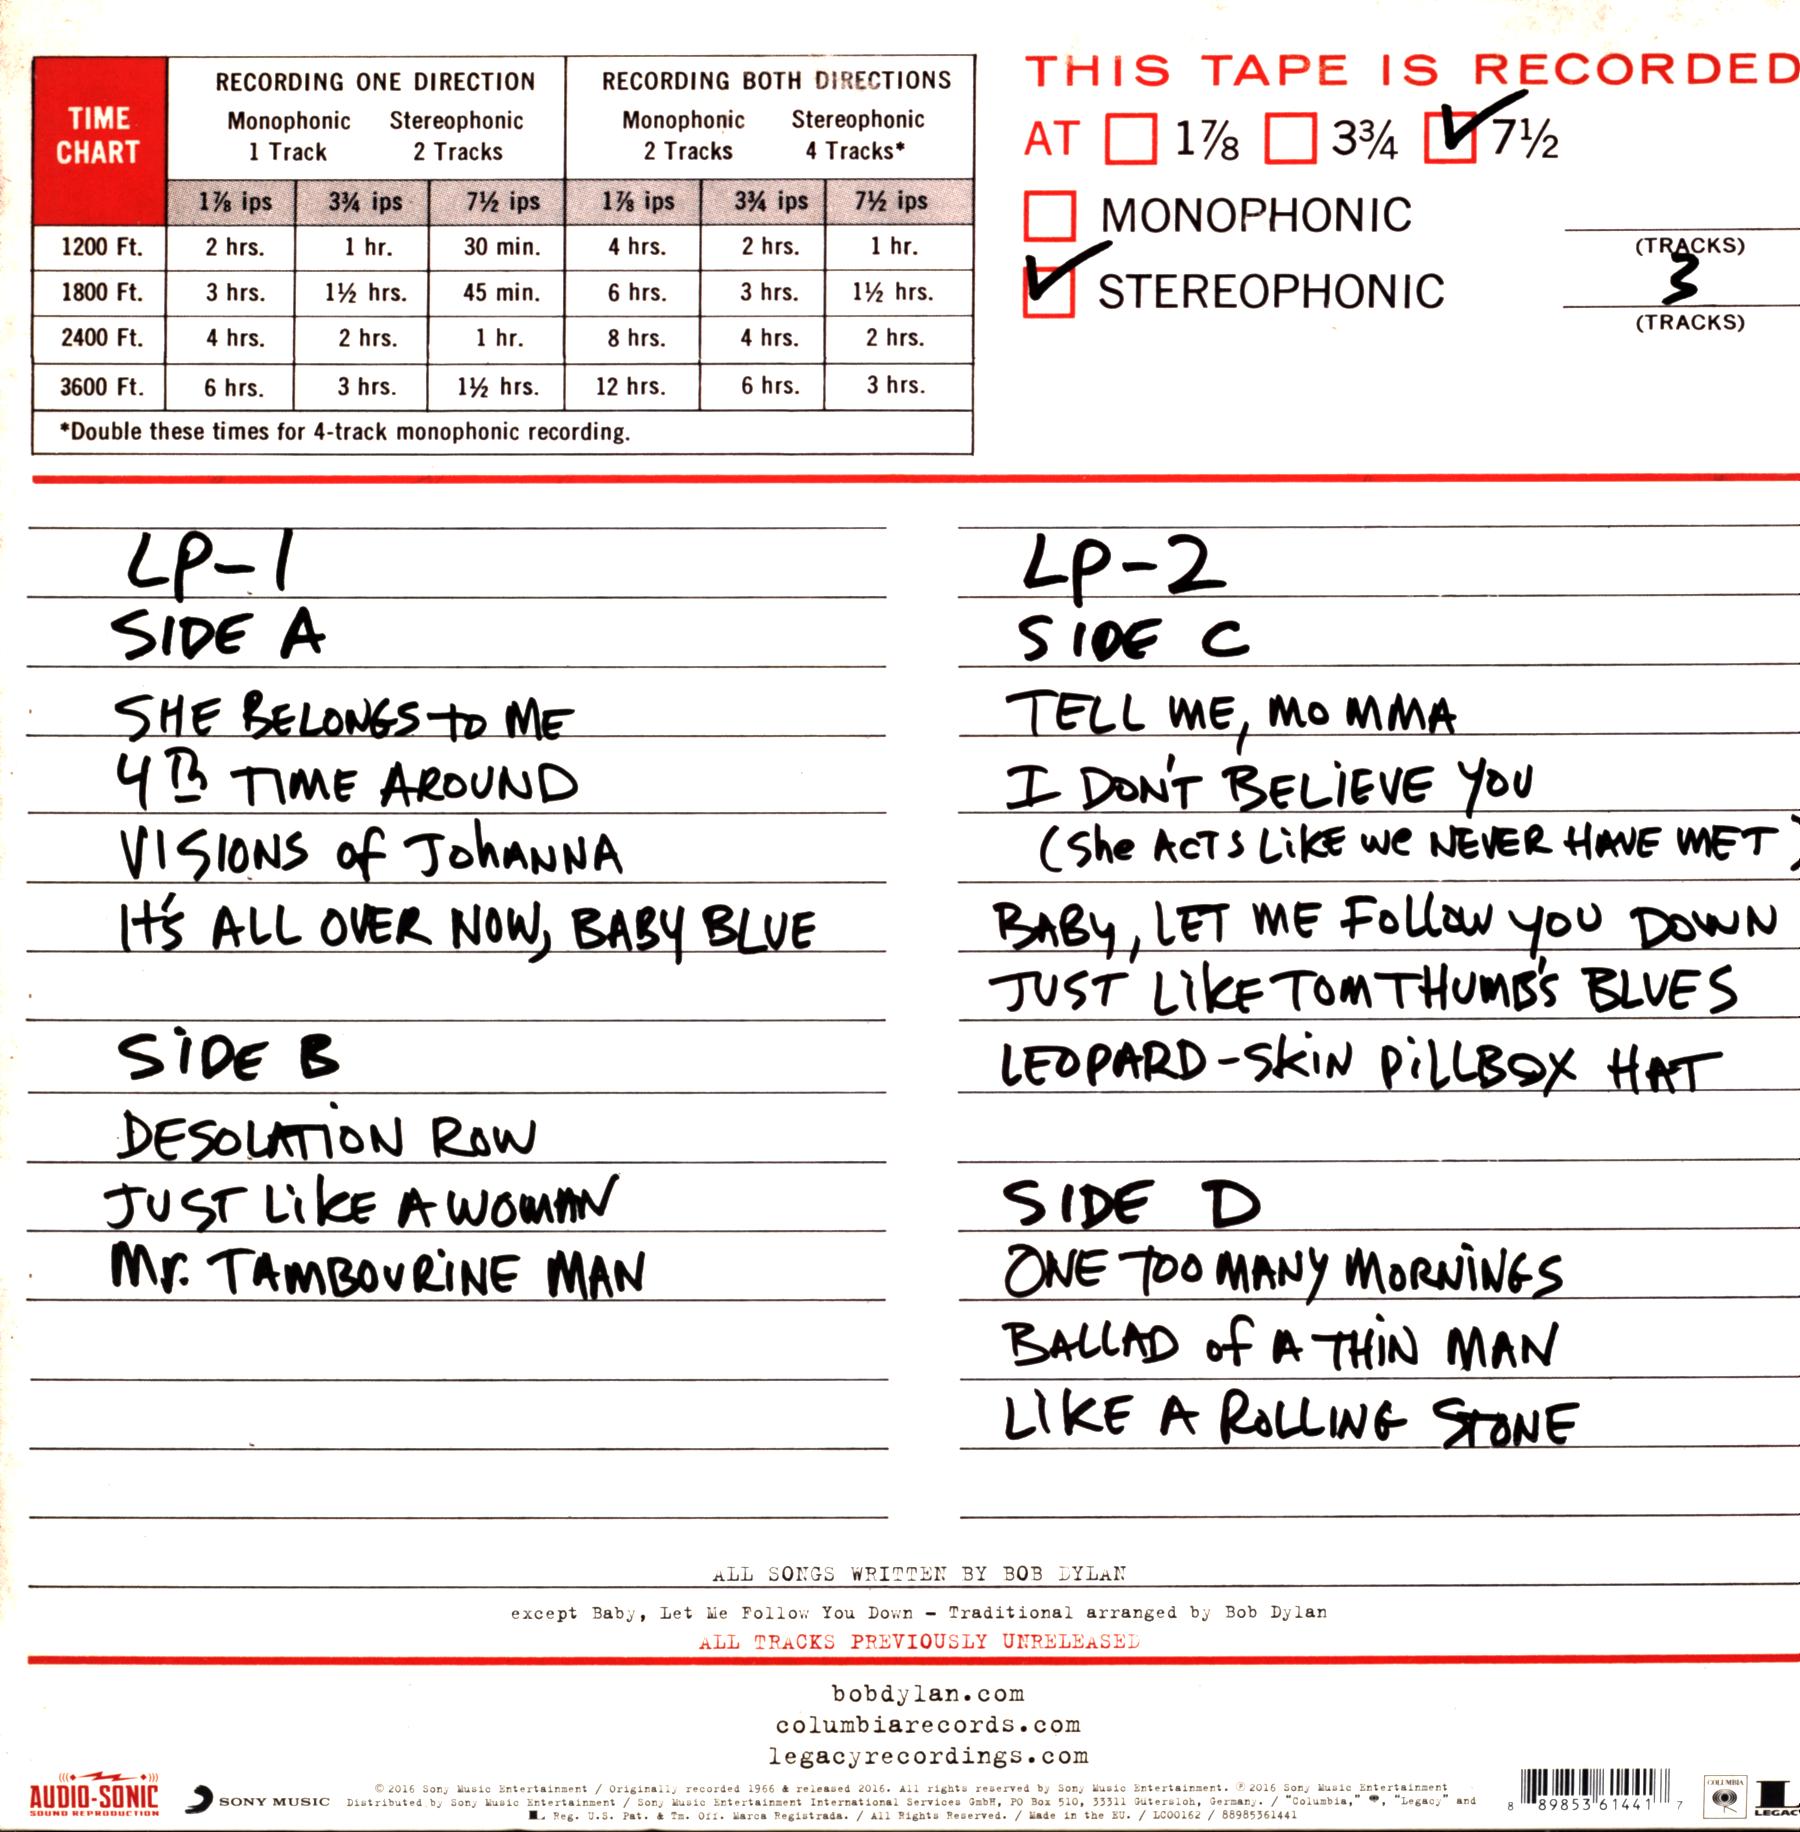 TIME CHART
RECORDING ONE DIRECTION
RECORDING BOTH DIRECTIONS
Monophonic 1 Track
Stereophonic 2 Tracks
Monophonic 2 Tracks
Stereophonic 4 Tracks*
1⅞ ips 3¾ ips 7½ ips 1⅞ ips 3¾ ips 7½ ips
1200 Ft. 2 hrs. 1 hr. 30 min. 4 hrs. 2 hrs. 1 hr.
1800 Ft. 3 hrs. 1½ hrs. 45 min. 6 hrs. 3 hrs. 1½ hrs.
2400 Ft. 4 hrs. 2 hrs. 1 hr. 8 hrs. 4 hrs. 2 hrs.
3600 Ft. 6 hrs. 3 hrs. 1½ hrs. 12 hrs. 6 hrs. 3 hrs.
*Double these times for 4-track monophonic recording.
THIS TAPE IS RECORDED
AT 1⅞ 3¾ 7½
MONOPHONIC
(TRACKS)
STEREOPHONIC 3
(TRACKS)
LP-1
SIDE A
SHE BELONGS to ME
4th TIME AROUND
VISIONS of JohANNA
It's ALL OVER NOW, BABY BLUE
SiDE B
DESOLATiON ROW
JUST LikE A WOMAN
Mr. TAMBOURiNE MAN
LP-2
SIDE C
TELL ME, MOMMA
I DON'T BELiEVE YOU
(She ACTS LiKE we NEVER HAVE MET)
BABY, LET ME Follow YOU DOWN
JUST LikE TOM THUMB'S BLUES
LEOPARD-SkiN PiLLBOX HAT
SIDE D
ONE TOO MANY MORNiNGS
BALLAD of A THiN MAN
LIKE A ROLLING STONE
ALL SONGS WRITTEN BY BOB DYLAN
except Baby, Let Me Follow You Down – Traditional arranged by Bob Dylan
ALL TRACKS PREVIOUSLY UNRELEASED
bobdylan.com
columbiarecords.com
legacyrecordings.com
AUDIO-SONIC
SOUND REPRODUCTION
SONY MUSIC
© 2016 Sony Music Entertainment / Originally recorded 1966 & released 2016. All rights reserved by Sony Music Entertainment. ℗ 2016 Sony Music Entertainment
Distributed by Sony Music Entertainment / Sony Music Entertainment International Services GmbH, PO Box 510, 33311 Gütersloh, Germany. / "Columbia," "Legacy" and
L Reg. U.S. Pat. & Tm. Off. Marca Registrada. / All Rights Reserved. / Made in the EU. / LC00162 / 88985361441
8 89853 61441 7
COLUMBIA
LEGACY